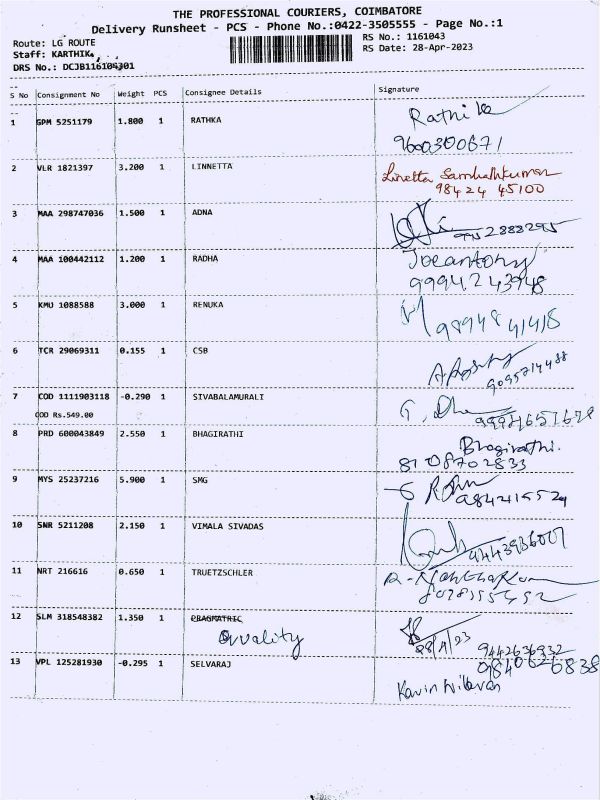 THE PROFESSIONAL COURIERS, COIMBATORE
Delivery Runsheet - PCS - Phone No.:0422-3505555 - Page No.:1
Route: LG ROUTE
RS No.: 1161043
Staff: KARTHIK
RS Date: 28-Apr-2023
DRS No.: DCJB116104301
S No Consignment No Weight PCS Consignee Details Signature
1 GPM 5251179 1.800 1 RATHKA Rathika
9600300671
2 VLR 1821397 3.200 1 LINNETTA Linetta Sambathkumar
98424 45100
3 MAA 298747036 1.500 1 ADNA
9952888295
4 MAA 100442112 1.200 1 RADHA Joeantony
9994243948
5 KMU 1088588 3.000 1 RENUKA
98948 41418
6 TCR 29069311 0.155 1 CSB
9095714488
7 COD 1111903118 -0.290 1 SIVABALAMURALI
COD Rs.549.00
8 PRD 600043849 2.550 1 BHAGIRATHI Bhagirathi.
8108702833
9 MYS 25237216 5.900 1 SMG
10 SNR 5211208 2.150 1 VIMALA SIVADAS
11 NRT 216616 0.650 1 TRUETZSCHLER
12 SLM 318548382 1.350 1 PRAGMATRIC
Quality 28/4/23
9442636932
13 VPL 125281930 -0.295 1 SELVARAJ 9840626838